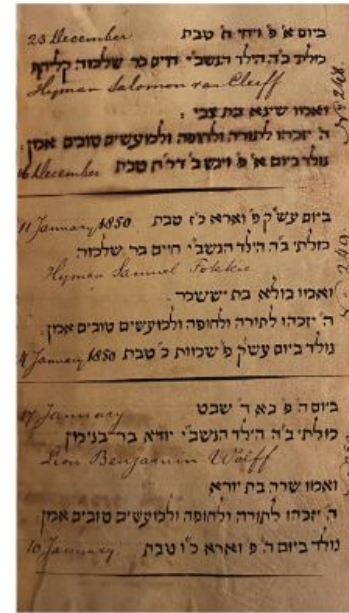 23 December ביום א' פ' ויחי ח' טבת
מלתי ב"ה הילד הנשב"י חיים בר שלמה קליף
Hyman Salomon van Cleeff
ואמו שינא בת צבי :
ה' יזכהו לתורה ולחופה ולמעשים טובים אמן :
16 December נולד ביום א' פ' ויגש ב' דר"ח טבת
No 248.
11 January 1850 ביום עש"ק פ' וארא כ"ז טבת
מלתי ב"ה הילד הנשב"י חיים בר שלמה
Hyman Samuel Fokkie
ואמו בולא בת יששכר.
ה' יזכהו לתורה ולחופה ולמעשים טובים אמן.
4 January 1850 נולד ביום עש"ק פ' שמות כ' טבת
249
17 January ביום ה' פ' בא ד' שבט
מלתי ב"ה הילד הנשב"י יודא בר בנימן
Lion Benjamin Wolff
ואמו שרה בת יודא
ה' יזכהו לתורה ולחופה ולמעשים טובים אמן.
10 January. נולד ביום ה' פ' וארא כ"ו טבת